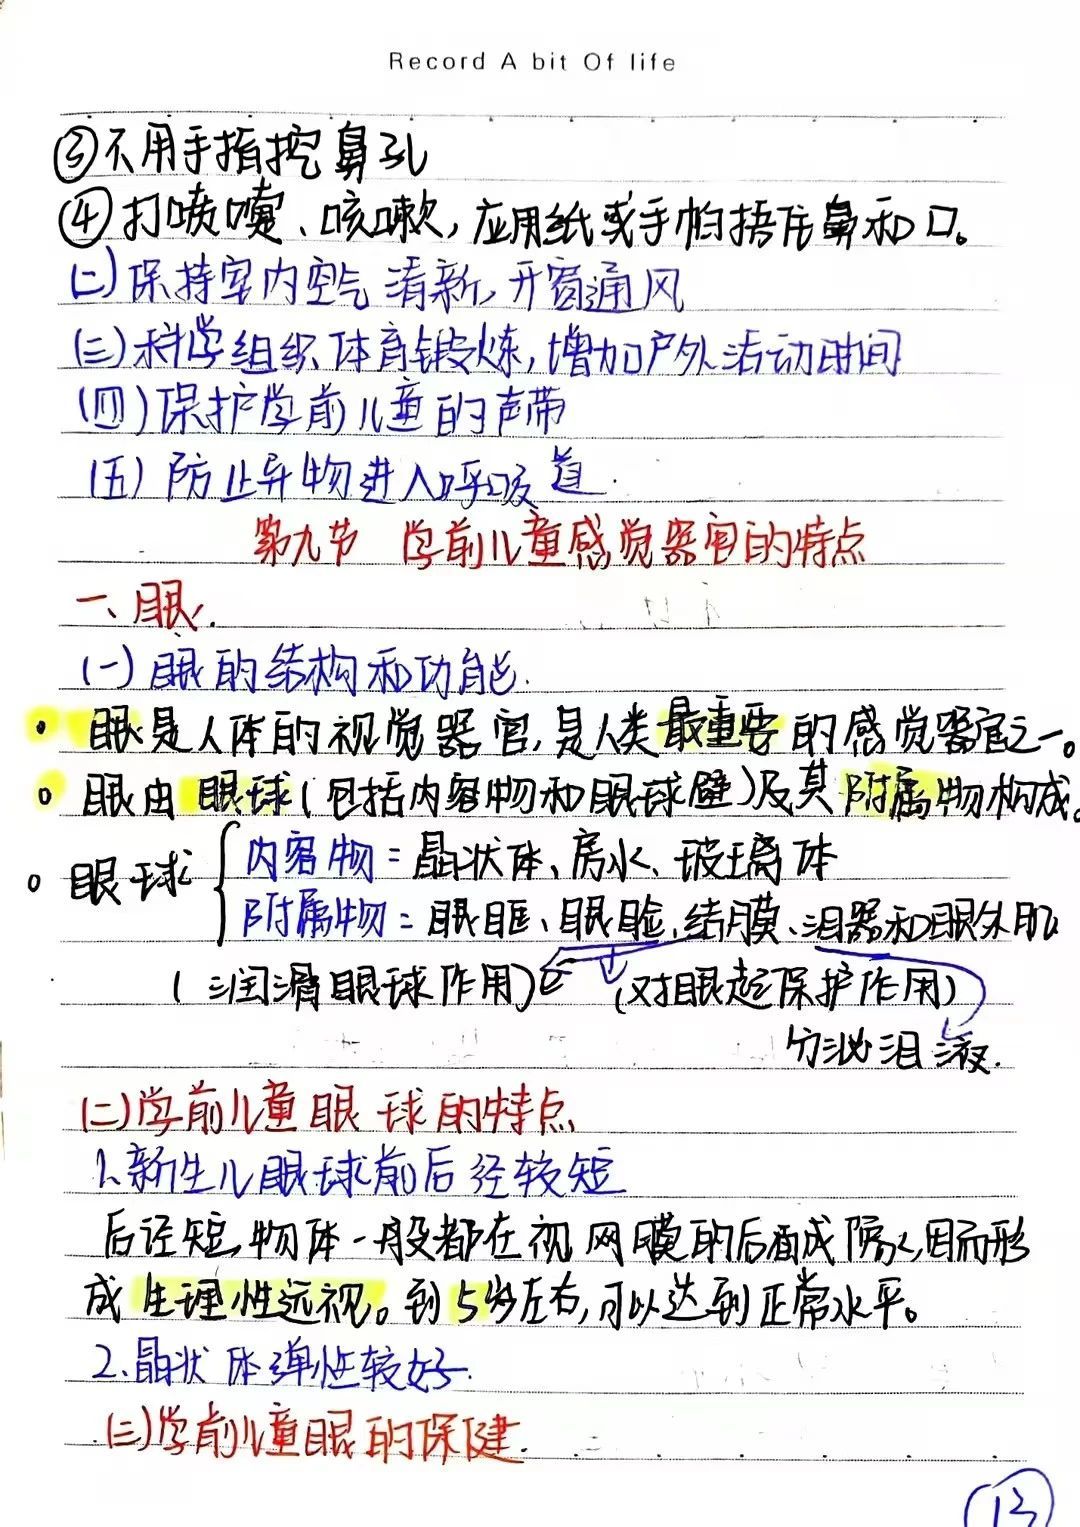 Record A bit Of life
③不用手指挖鼻孔
④打喷嚏、咳嗽,应用纸或手帕捂住鼻和口。
(二)保持室内空气清新,开窗通风
(三)科学组织体育锻炼,增加户外活动时间
(四)保护学前儿童的声带
(五)防止异物进入呼吸道.
第九节 学前儿童感觉器官的特点
一、眼.
(一)眼的结构和功能.
• 眼是人体的视觉器官,是人类最重要的感觉器官之一。
o 眼由眼球(包括内容物和眼球壁)及其附属物构成。
o 眼球
内容物=晶状体、房水、玻璃体
附属物=眼眶、眼睑、结膜、泪器和眼外肌
(润滑眼球作用) (对眼起保护作用)
分泌泪液.
(二)学前儿童眼球的特点
1.新生儿眼球前后径较短
后径短,物体一般都在视网膜的后面成像,因而形
成生理性远视。到5岁左右,可以达到正常水平。
2.晶状体弹性较好.
(三)学前儿童眼的保健.
13